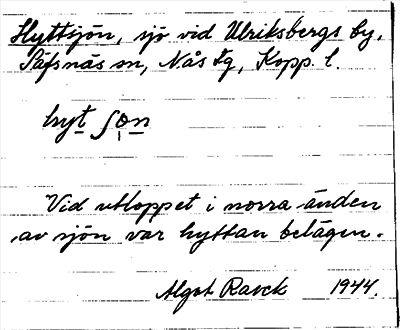 Hyttsjön, sjö vid Ulriksbergs by,
Säfsnäs sn, Nås tg, Kopp. l.
hyt ʃo̩n
Vid utloppet i norra änden
av sjön var hyttan belägen.
Algot Rasck 1944.